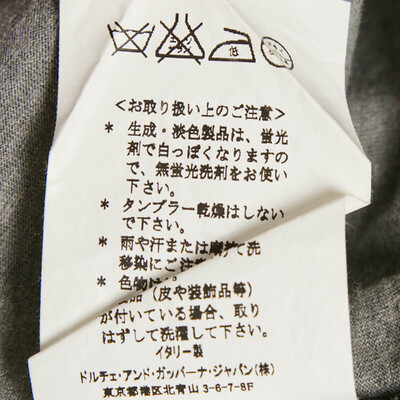 低
<お取り扱い上のご注意>
* 生成・淡色製品は、蛍光
剤で白っぽくなりますの
で、無蛍光洗剤をお使い
下さい。
* タンブラー乾燥はしない
で下さい。
* 雨や汗または摩擦で洗
移染にご注意
* 色物は
品 (皮や装飾品等)
が付いている場合、取り
はずして洗濯して下さい。
イタリー製
ドルチェ・アンド・ガッバーナ・ジャパン(株)
東京都港区北青山 3-6-7-8F